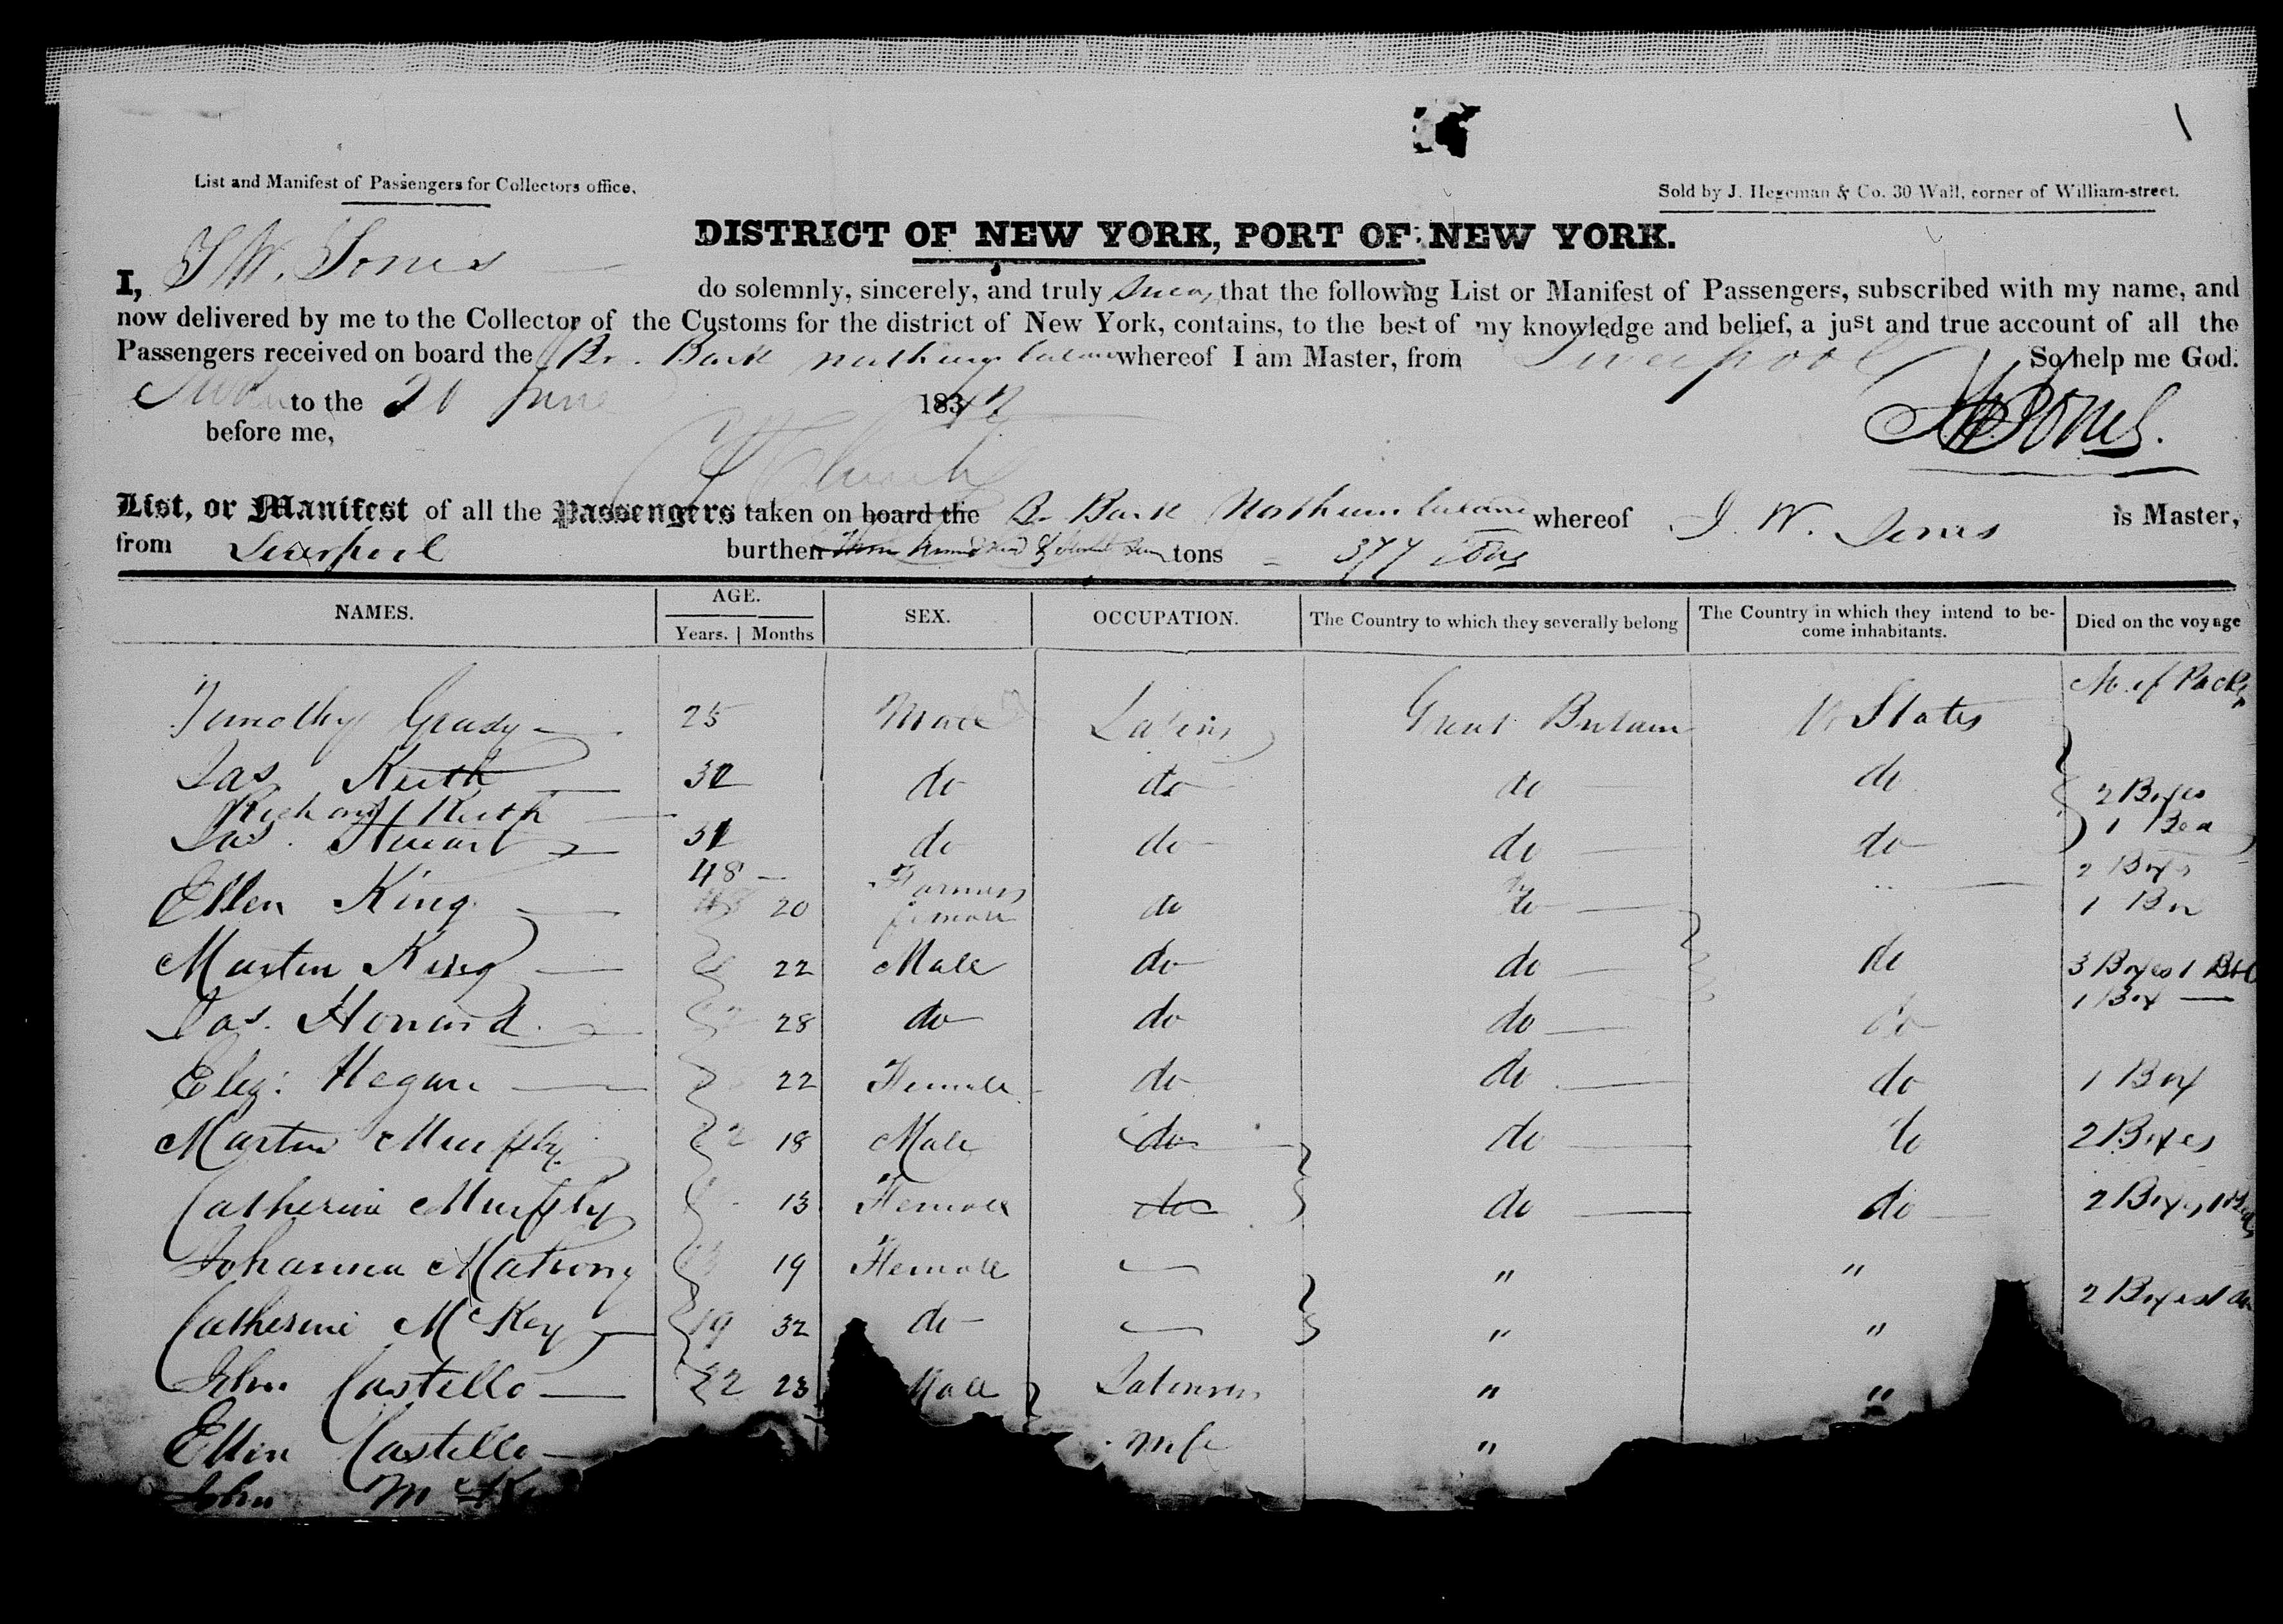 List and Manifest of Passengers for Collectors office.
Sold by J. Hegeman & Co. 30 Wall, corner of William-street.
DISTRICT OF NEW YORK, PORT OF NEW YORK.
I, J W. Jones do solemnly, sincerely, and truly swear, that the following List or Manifest of Passengers, subscribed with my name, and
now delivered by me to the Collector of the Customs for the district of New York, contains, to the best of my knowledge and belief, a just and true account of all the
Passengers received on board the Br. Bark Northumberland whereof I am Master, from Liverpool So help me God.
to the 20 June 183
before me,
J W Jones.
List, or Manifest of all the Passengers taken on board the Br Bark Northumberland whereof J. W. Jones is Master,
from Liverpool burthen tons = 377 Tons
NAMES. AGE. SEX. OCCUPATION. The Country to which they severally belong The Country in which they intend to become inhabitants. Died on the voyage
Years. Months
No. of Packgs
Timothy Grady 25 Male Great Britain U States
Jas Keith 32 do do do do 2 Boxes
Richard Keith 1 Bed
Jas. Stewart 31 do do do do
48 2 Boxes
Ellen King 20 female do do 1 Box
Martin King 22 Male do do do 3 Boxes 1
1 Box
Jas. Howard 28 do do do do
Eliz: Hegan 22 Female do do do 1 Box
Martin Murphy 18 Male do do do 2 Boxes
Catherine Murphy 13 Female do do do 2 Boxes
Johanna Mahony 19 Female " "
Catherine McKay 19 32 do " " 2 Boxes 1
John Castello 22 23 Male Labourer " "
Ellen Castello wife "
John McK